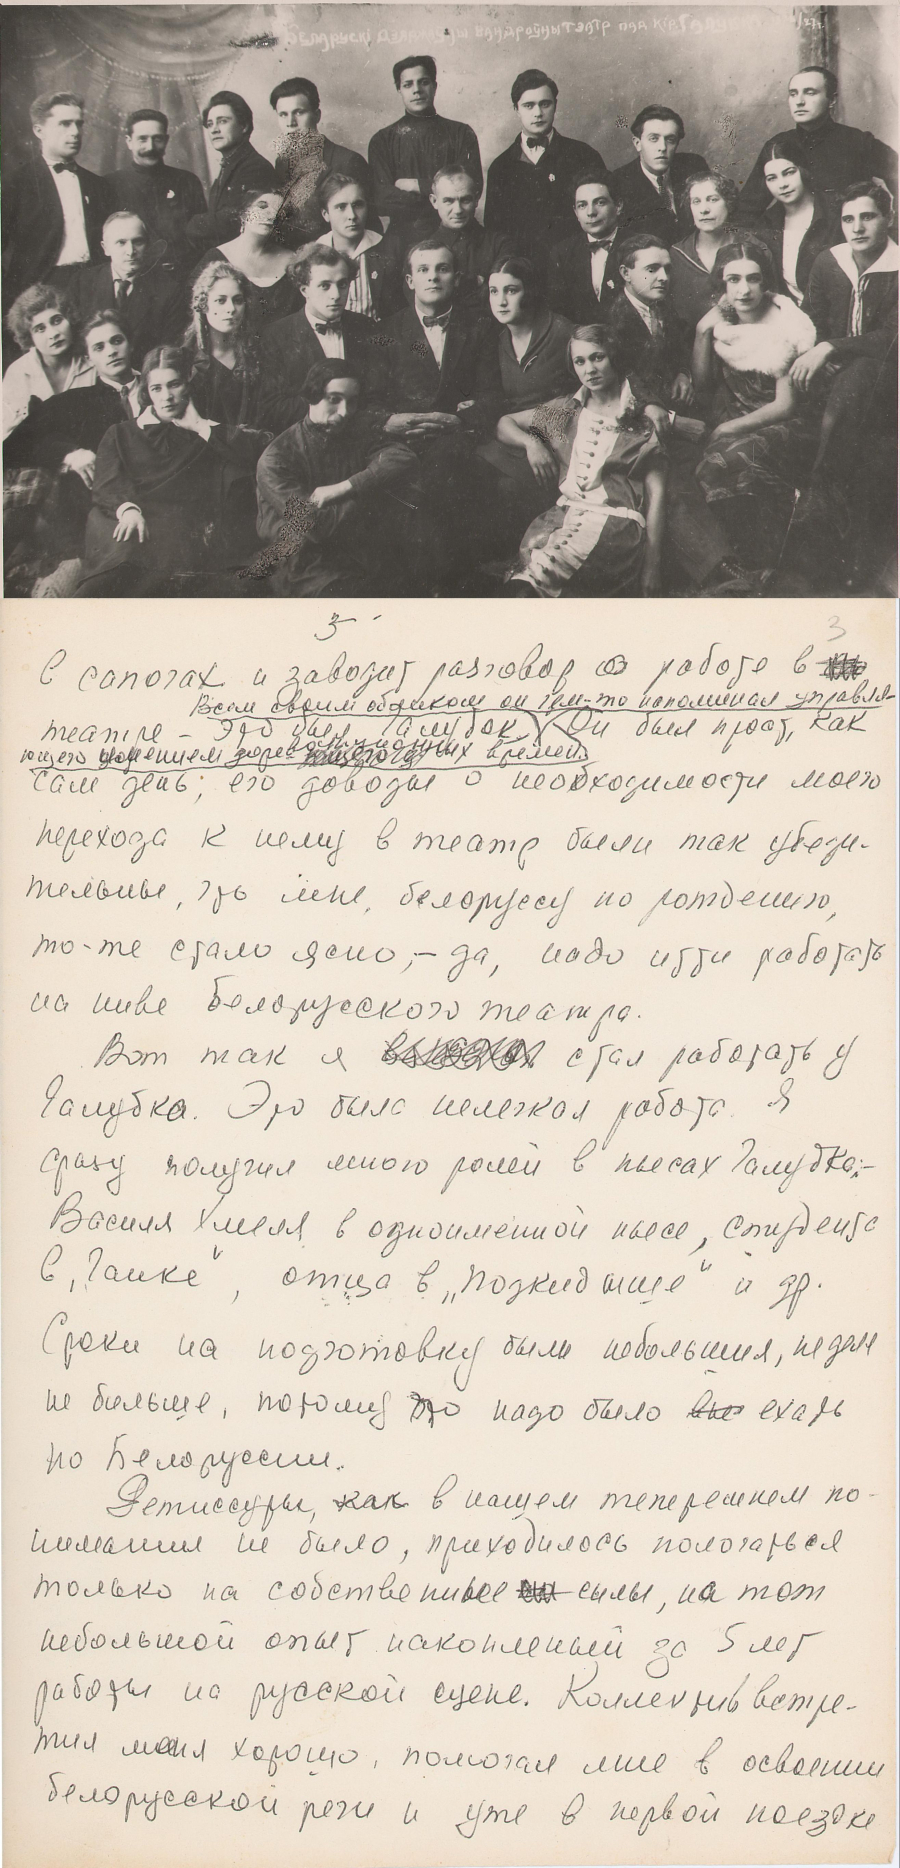 Беларускі Дзяржаўны Вандроўны тэатр пад кір. Галубка 27 г.
3
3
в сапогах и заводит разговор о работе в
Всем своим обликом он чем-то напоминал управля-
театре – Это был Галубок. Он был прост, как
ющего имением дореволюционных времен.
сам день; его доводы о необходимости моего
перехода к нему в театр были так убеди-
тельны, что мне, белоруссу по рождению,
то-же стало ясно,– да, надо итти работать
на ниве белорусского театра.
Вот так я стал работать у
Галубка. Это была нелегкая работа. Я
сразу получил много ролей в пьесах Галубка:–
Василя Хмеля в одноименной пьесе, студента
в „Ганке", отца в „Подкидыше" и др.
Сроки на подготовку были небольшия, неделя
не больше, потому что надо было ехать
по Белоруссии.
Режиссуры, как в нашем теперешнем по-
нимании не было, приходилось полагаться
только на собственные силы, на тот
небольшой опыт накопленый за 5 лет
работы на русской сцене. Коллектив встре-
тил меня хорошо, помогал мне в освоении
белорусской речи и уже в первой поездке